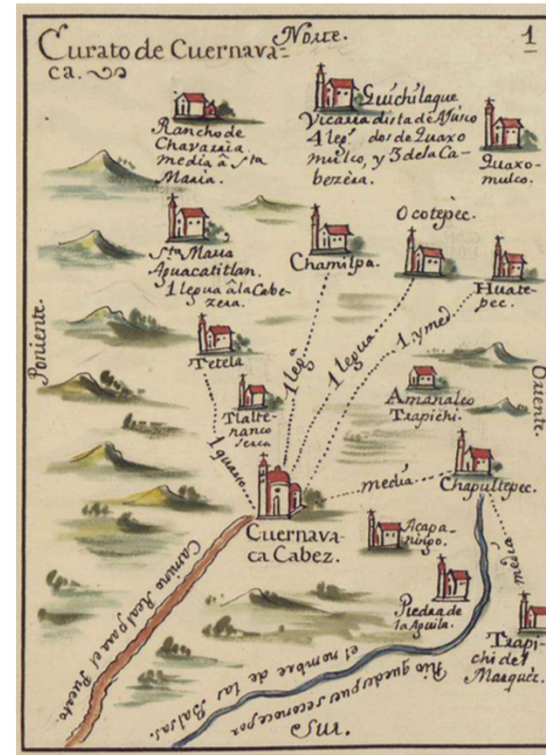 Norte.
1
Curato de Cuernava-
ca.
Rancho de
Chavarria.
media â Sta.
Maria.
Guichilaque
Vicaria dista de Ajusco
4 legs. dos de Quaxo
mulco, y 3 de la Ca-
bezera.
Quaxo-
mulco.
Sta. Maria
Aguacatitlan.
1 legua â la Cabe-
zera.
Chamilpa.
Ocotepec.
Huate-
pec.
Poniente.
Oriente.
Tetela
Tlalte-
nanco
serca
1 quarto.
1 lega.
1 legua
1. y med
Amanalco
Trapichi.
Cuernava-
ca Cabez.
media
Chapultepec.
media
Acapa-
nirigo.
Piedra de
la Aguila.
Trapi-
chi del
Marquéz.
Camino Real para el Puerto.
Rio que despues se conoce por
el nombre de las Balsas.
Sur.